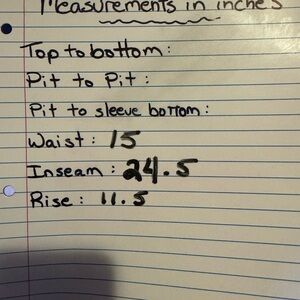 Measurements in inches
Top to bottom :
Pit to Pit :
Pit to sleeve bottom :
Waist : 15
Inseam : 24.5
Rise : 11.5